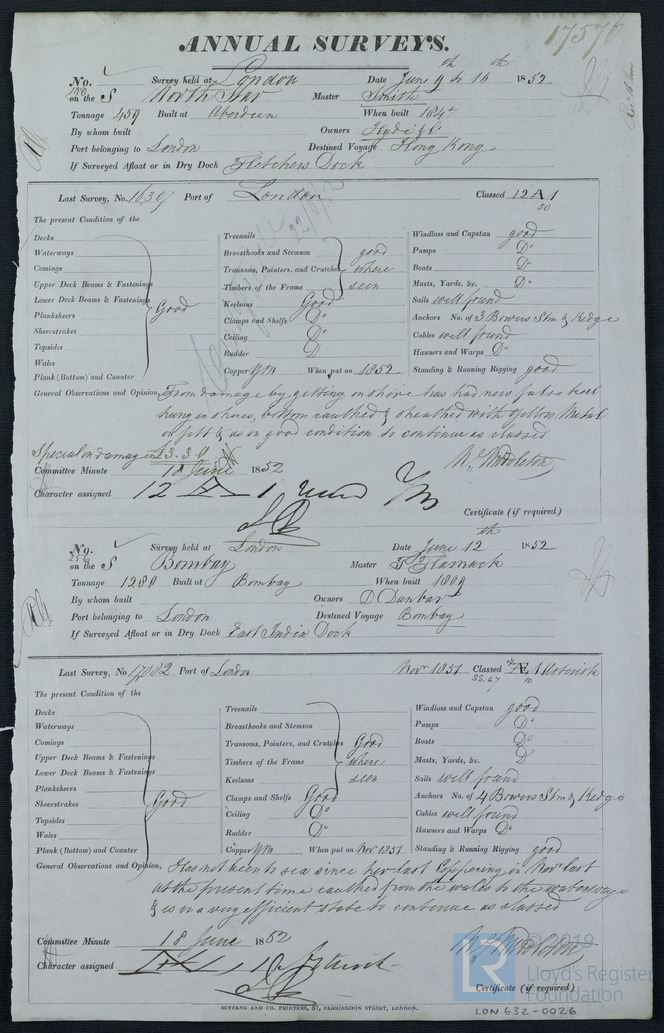 17576
ANNUAL SURVEYS.
No. Survey held at London Date June 9th to 16th 1852
on the S North Star Master Smith
Tonnage 459 Built at Aberdeen When built 1847
By whom built Owners Hyde & Co
Port belonging to London Destined Voyage Hong Kong
If Surveyed Afloat or in Dry Dock Fletchers Dock
Last Survey, No. 16307 Port of London Classed 12 A 1
50
The present Condition of the
Decks
Waterways
Comings
Upper Deck Beams & Fastenings
Lower Deck Beams & Fastenings
Planksheers
Sheerstrakes
Topsides
Wales
Plank (Bottom) and Counter
Good
Treenails
Breasthooks and Stemson good
Transoms, Pointers, and Crutches where
Timbers of the Frame seen
Keelsons Good
Clamps and Shelfs Do
Ceiling Do
Rudder D
Copper Y/M When put on 1852
Windlass and Capstan good
Pumps Do
Boats Do
Masts, Yards, &c. Do
Sails well found
Anchors No. of 3 Bowers Stm & Kedge
Cables well found
Hawsers and Warps Do
Standing & Running Rigging good
General Observations and Opinion, From damage by getting on shore has had new false keel
hung in shoes, bottom caulked & sheathed with Yellow Metal
on felt & is in good condition to continue as classed
Special on damage £3.3.0
Committee Minute 18 June 1852
Wm Middleton
Character assigned 12 A 1
Certificate (if required)
No. Survey held at London Date June 12th 1852
on the S Bombay Master
Tonnage 1280 Built at Bombay When built 1809
By whom built Owners D Dunbar
Port belonging to London Destined Voyage Bombay
If Surveyed Afloat or in Dry Dock East India Dock
Last Survey, No. 17082 Port of London Nov 1851 Classed Æ 1
SS. 47
The present Condition of the
Decks
Waterways
Comings
Upper Deck Beams & Fastenings
Lower Deck Beams & Fastenings
Planksheers
Sheerstrakes
Topsides
Wales
Plank (Bottom) and Counter
Good
Treenails
Breasthooks and Stemson
Transoms, Pointers, and Crutches Good
Timbers of the Frame where
Keelsons seen
Clamps and Shelfs Good
Ceiling Do
Rudder Do
Copper Y/M When put on Nov 1851
Windlass and Capstan good
Pumps Do
Boats Do
Masts, Yards, &c. Do
Sails well found
Anchors No. of 4 Bowers Stm & Kedge
Cables well found
Hawsers and Warps Do
Standing & Running Rigging good
General Observations and Opinion, Has not been to sea since her last Coppering in Novr last
at the present time caulked from the wales to the waterways
& is in a very efficient state to continue as classed
Committee Minute 18 June 1852
Wm Middleton
Character assigned
Certificate (if required)
SEYFANG AND CO. PRINTERS, 57, FARRINGDON STREET, LONDON.
© 2019
Lloyd's Register
Foundation
LON 632-0026